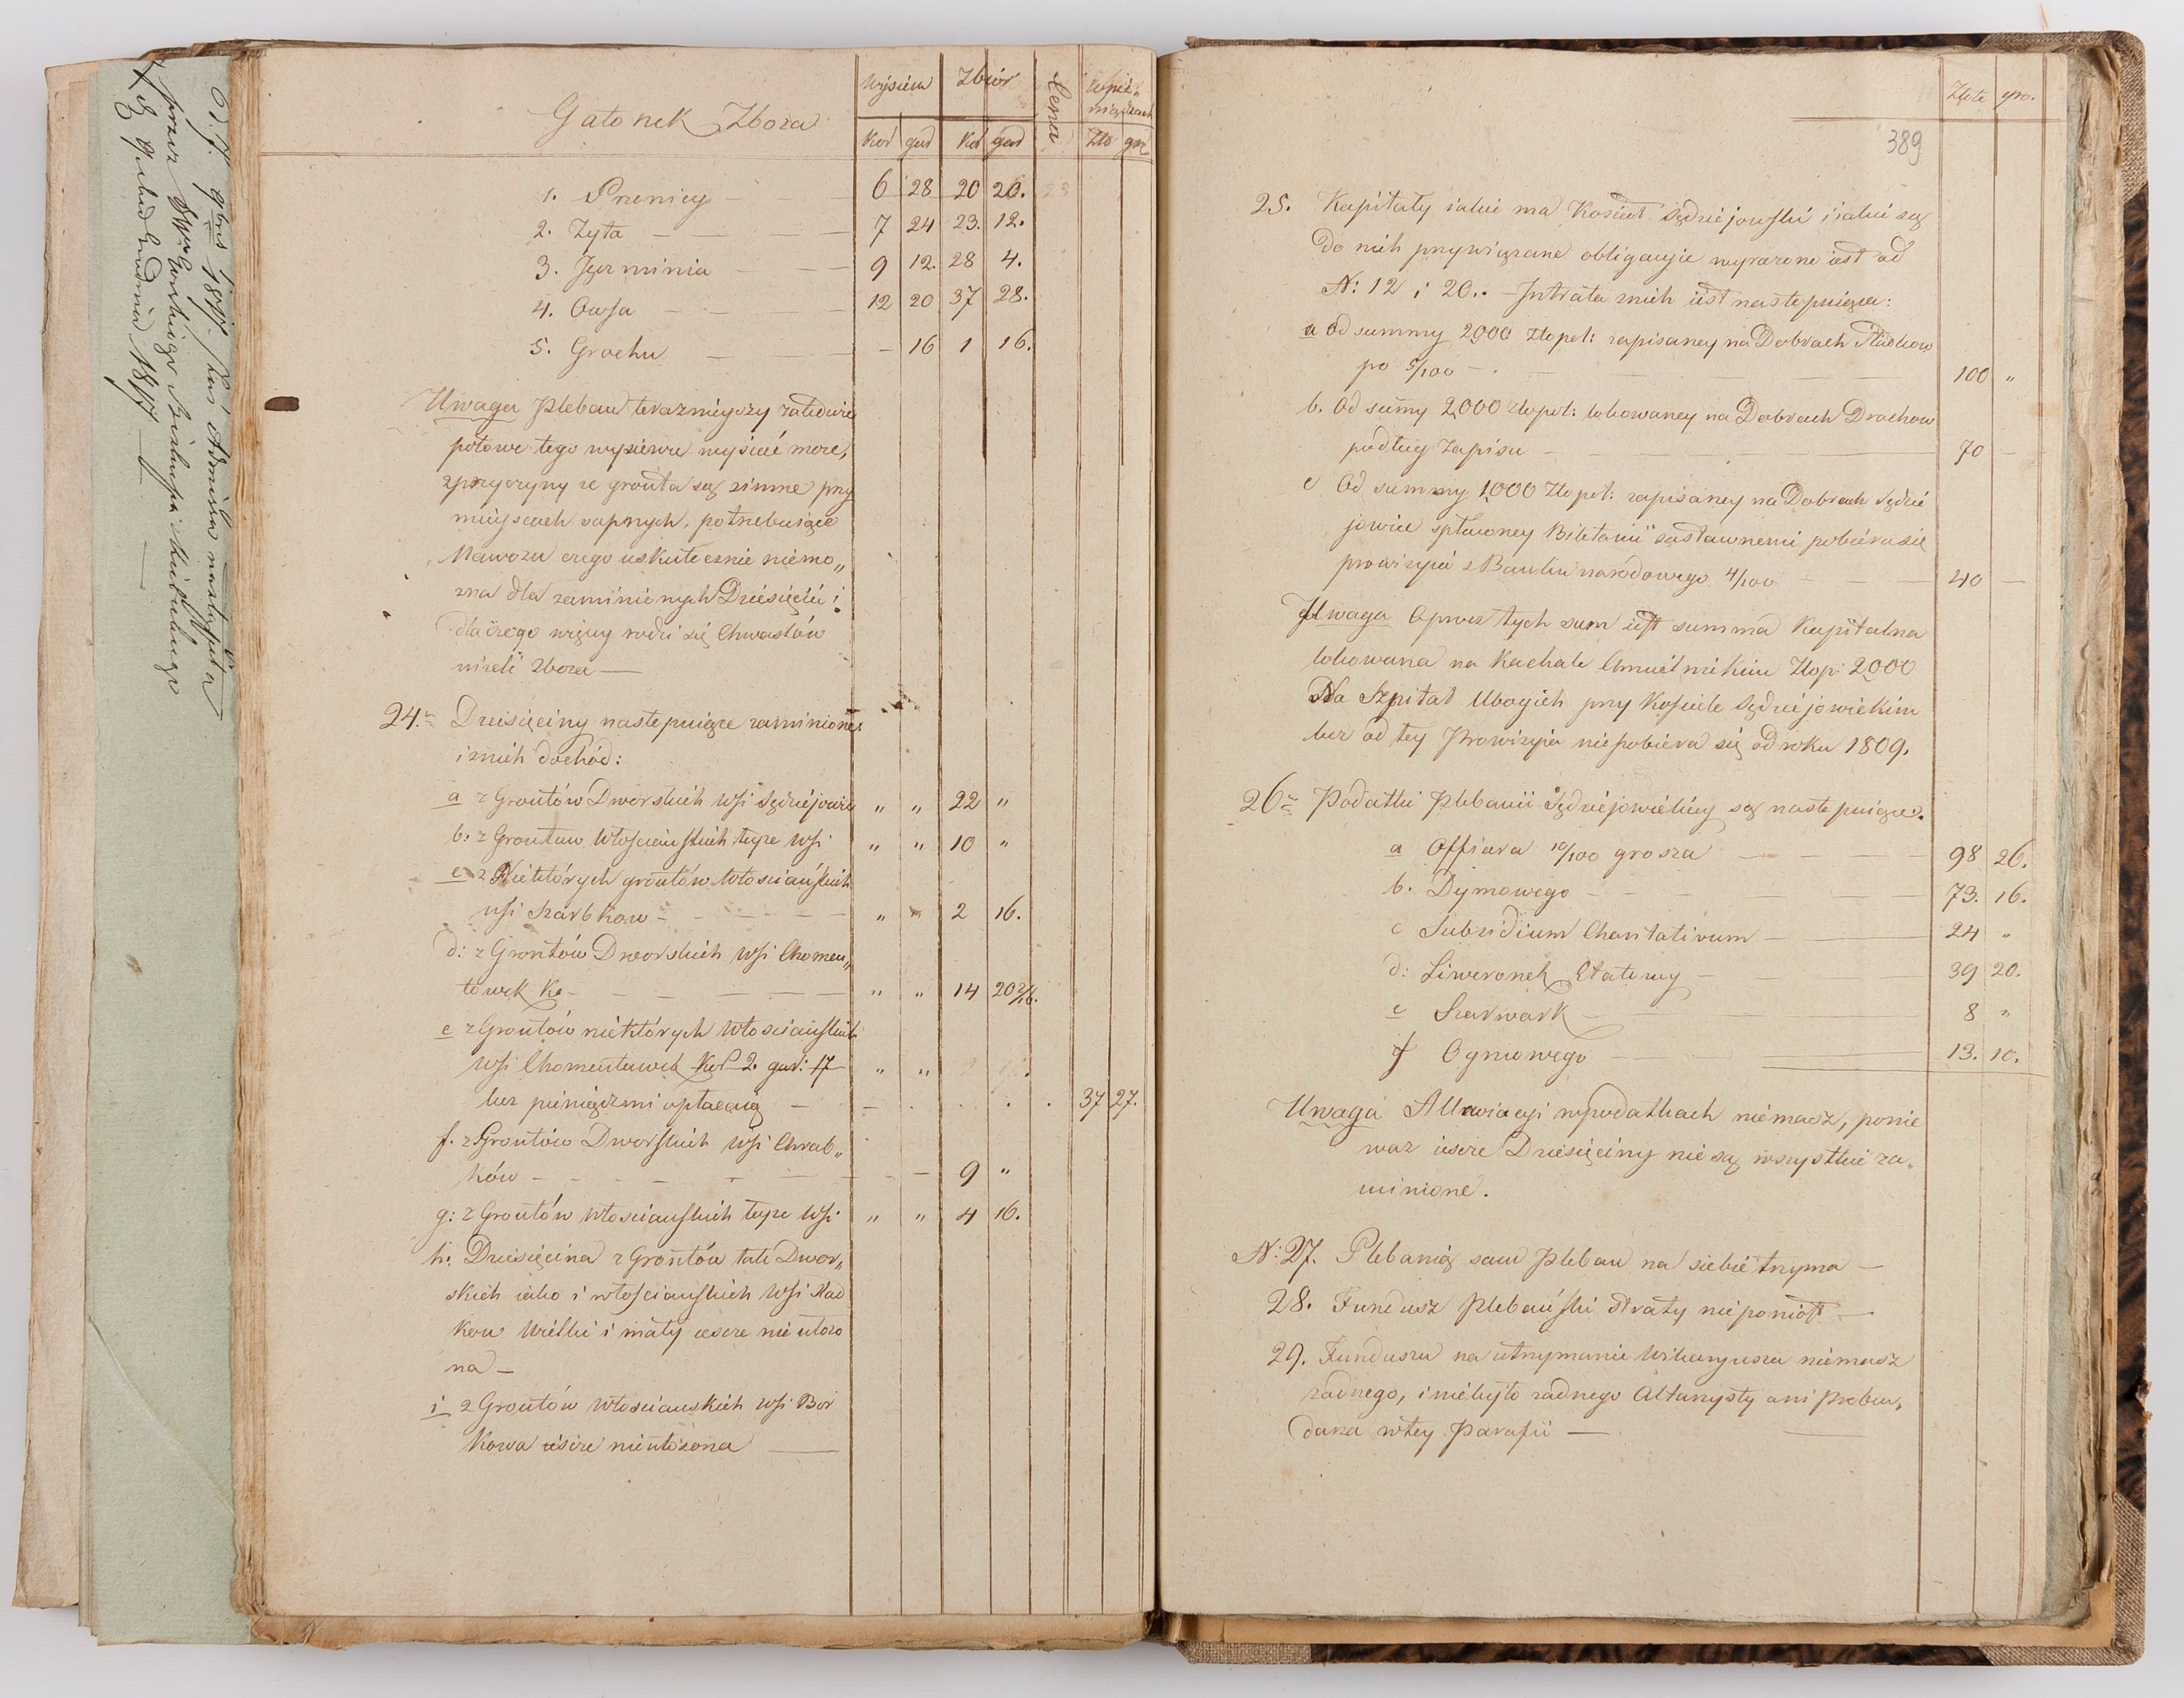 Gatonek Zboza
Wysiew Zbiór Cena w pie„
niądzach
Kor gar Kor gar Zło gr
1. Pszenicy — — 6 28 20 20.
2. Zyta — — — — 7 24 23. 12.
3. Jęczminia — — — 9 12. 28 4.
4. Owsa — — — 12 20 37 28.
5. Grochu — — — 16 1 16.
Uwaga Pleban teraznieyszy zaledwie
połowe tego wysiewu wysiać moze,
zprzyczyny ze grónta są zimne przy
mieyscach sapnych, potrzebuiące
Nawozu czego uskutecznić niemo„
zna dla zaminionych Dziesięcin i
dla czego więcy rodzi się Chwastów
nizeli zboza —
24. Dziesięciny następuiące zaminione
i znich dochód:
a z Grontów Dworskich Wsi Sędziejowic „ „ 22 „
b: z Grontów Włosciańskich teyze Wsi „ „ 10 „
c z Niektórych grontów Włosciańskich
wsi Szarbkow — — — „ „ 2 16.
d: z Grontów Dworskich Wsi Chomen„
towek Ko — — — „ „ 14 20 2/16.
e z Grontów niektórych Włosciańskich
Wsi Chomentówek Kor 2. gar: 17 „ „
lecz pieniędzmi opłacaią — — . . . . 37 27.
f. z Grontów Dworskich Wsi Chrab„
ków — — — — — — 9 „
g: z Grontów Włosciańskich teyze Wsi „ „ 4 16.
h: Dziesięcina z Grontów tak Dwor„
skich iako i włosciańskich Wsi Mad
kow Wielki i mały ieszcze nie ułozo
na —
i z Grontów Włosciańskich Wsi Bor
kowa ieszcze nieułozona —
Złote gro.
389
25. Kapitały iakie ma Kosciół Sędziejowski i iakie są
do nich przywiązane obligacyie wyrazone iest od
N: 12 i 20. — Intrata znich iest następuiąca:
a Od summy 2000 Złopol: zapisaney na Dobrach Sładkow
po 5/100 — . — — — 100 „
b. Od sumy 2,000 złopol: lokowaney na Dobrach Drochow
podług Zapisu — — — — 70 —
c Od summy 1,000 Złopol: zapisaney na Dobrach Sędzie
jowice spłaconey Biletami zastawnemi pobiera się
prowizyia z Banku narodowego 4/100 — — — 40 —
Uwaga Oprócz tych sum iest summa Kapitalna
lokowana na Kachale Chmielnikim Złop: 2000
Na Szpital Ubogich przy Kosciele Sędziejowickim
lecz od tey Prowizyia niepobiera się od roku 1809.
26. Podatki Plebanii Sędziejowickiey są następuiące.
a Offiara 10/100 grosza — — — — 98 26.
b. Dymowego — — — — 73. 16.
c Subsidium Charitativum — — 24 „
d: Liweronek Etatowy — — 39 20.
e Szarwark — — — 8 „
f Ogniowego — — — 13. 10.
Uwaga Allewiacyi wpodatkach niemasz, ponie
waz ieszcze Dziesięciny nie są wszystkie za„
minione.
N: 27. Plebanią sam Pleban na siebie trzyma —
28. Fundusz Plebański straty nieponiósł —
29. Funduszu na utrzymanie Wikaryusza niemasz
zadnego, i niebyło zadnego Altarzysty ani Preben„
darza wtey Parafii —